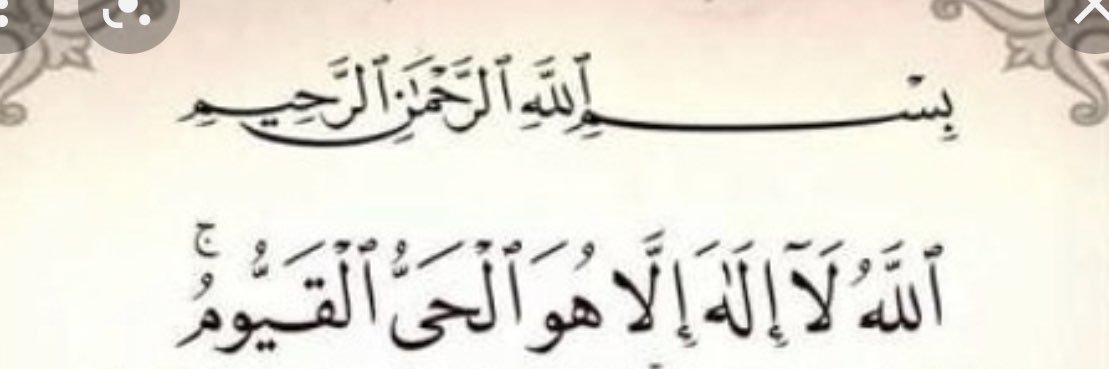 بِسْمِ ٱللَّهِ ٱلرَّحْمَٰنِ ٱلرَّحِيمِ
ٱللَّهُ لَآ إِلَٰهَ إِلَّا هُوَ ٱلْحَىُّ ٱلْقَيُّومُ ۚ